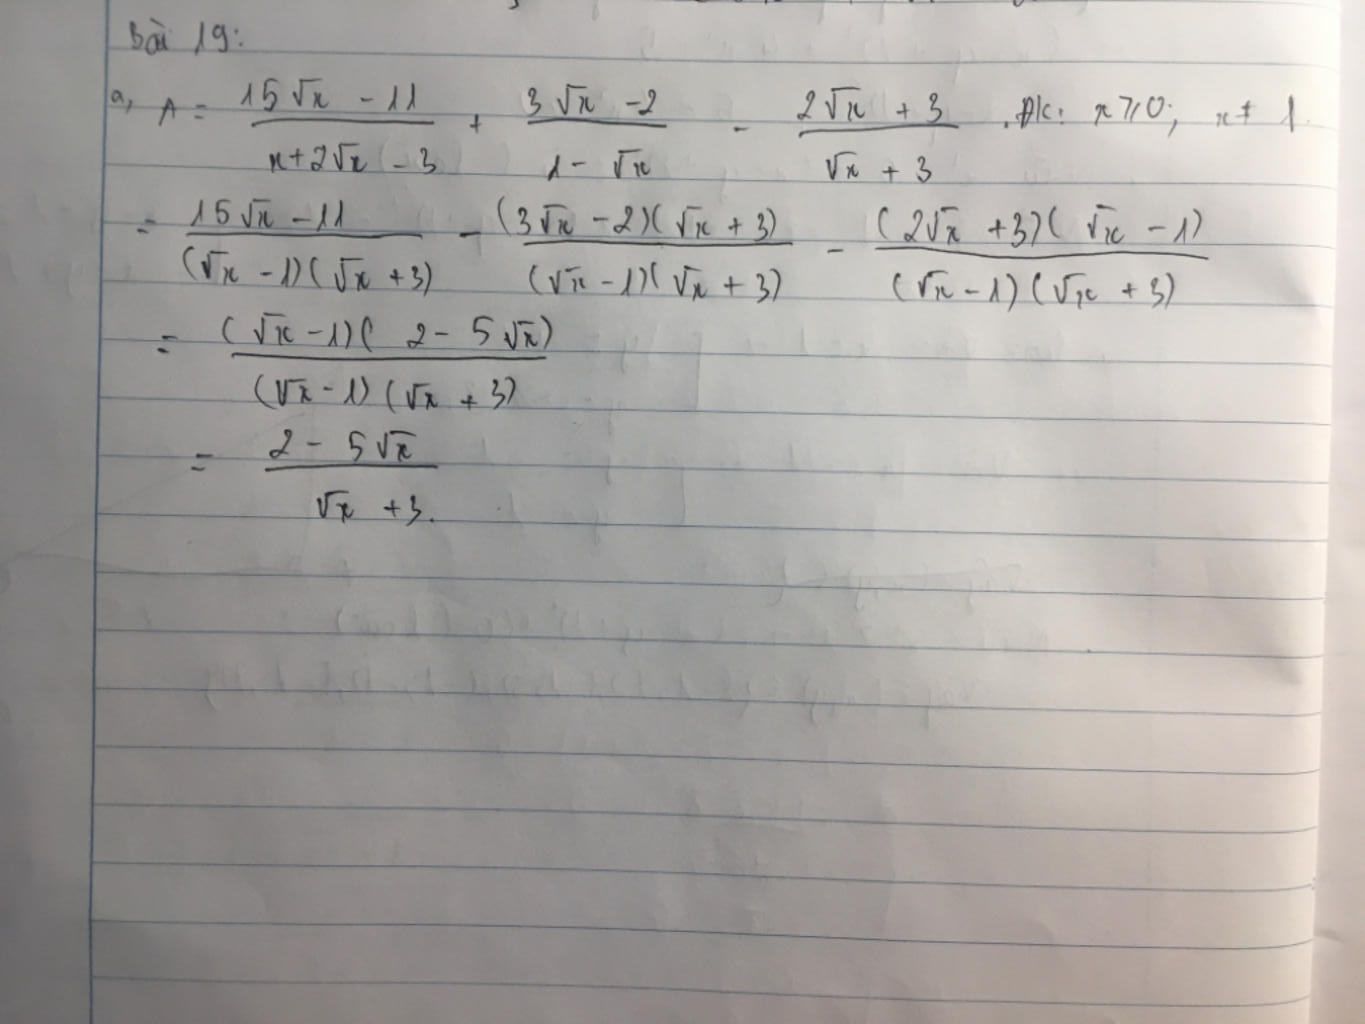 Bài 19:
a, A = \frac{15\sqrt{x} - 11}{x + 2\sqrt{x} - 3} + \frac{3\sqrt{x} - 2}{1 - \sqrt{x}} - \frac{2\sqrt{x} + 3}{\sqrt{x} + 3} . ĐK: x ≥ 0; x ≠ 1
= \frac{15\sqrt{x} - 11}{(\sqrt{x} - 1)(\sqrt{x} + 3)} - \frac{(3\sqrt{x} - 2)(\sqrt{x} + 3)}{(\sqrt{x} - 1)(\sqrt{x} + 3)} - \frac{(2\sqrt{x} + 3)(\sqrt{x} - 1)}{(\sqrt{x} - 1)(\sqrt{x} + 3)}
= \frac{(\sqrt{x} - 1)(2 - 5\sqrt{x})}{(\sqrt{x} - 1)(\sqrt{x} + 3)}
= \frac{2 - 5\sqrt{x}}{\sqrt{x} + 3}.